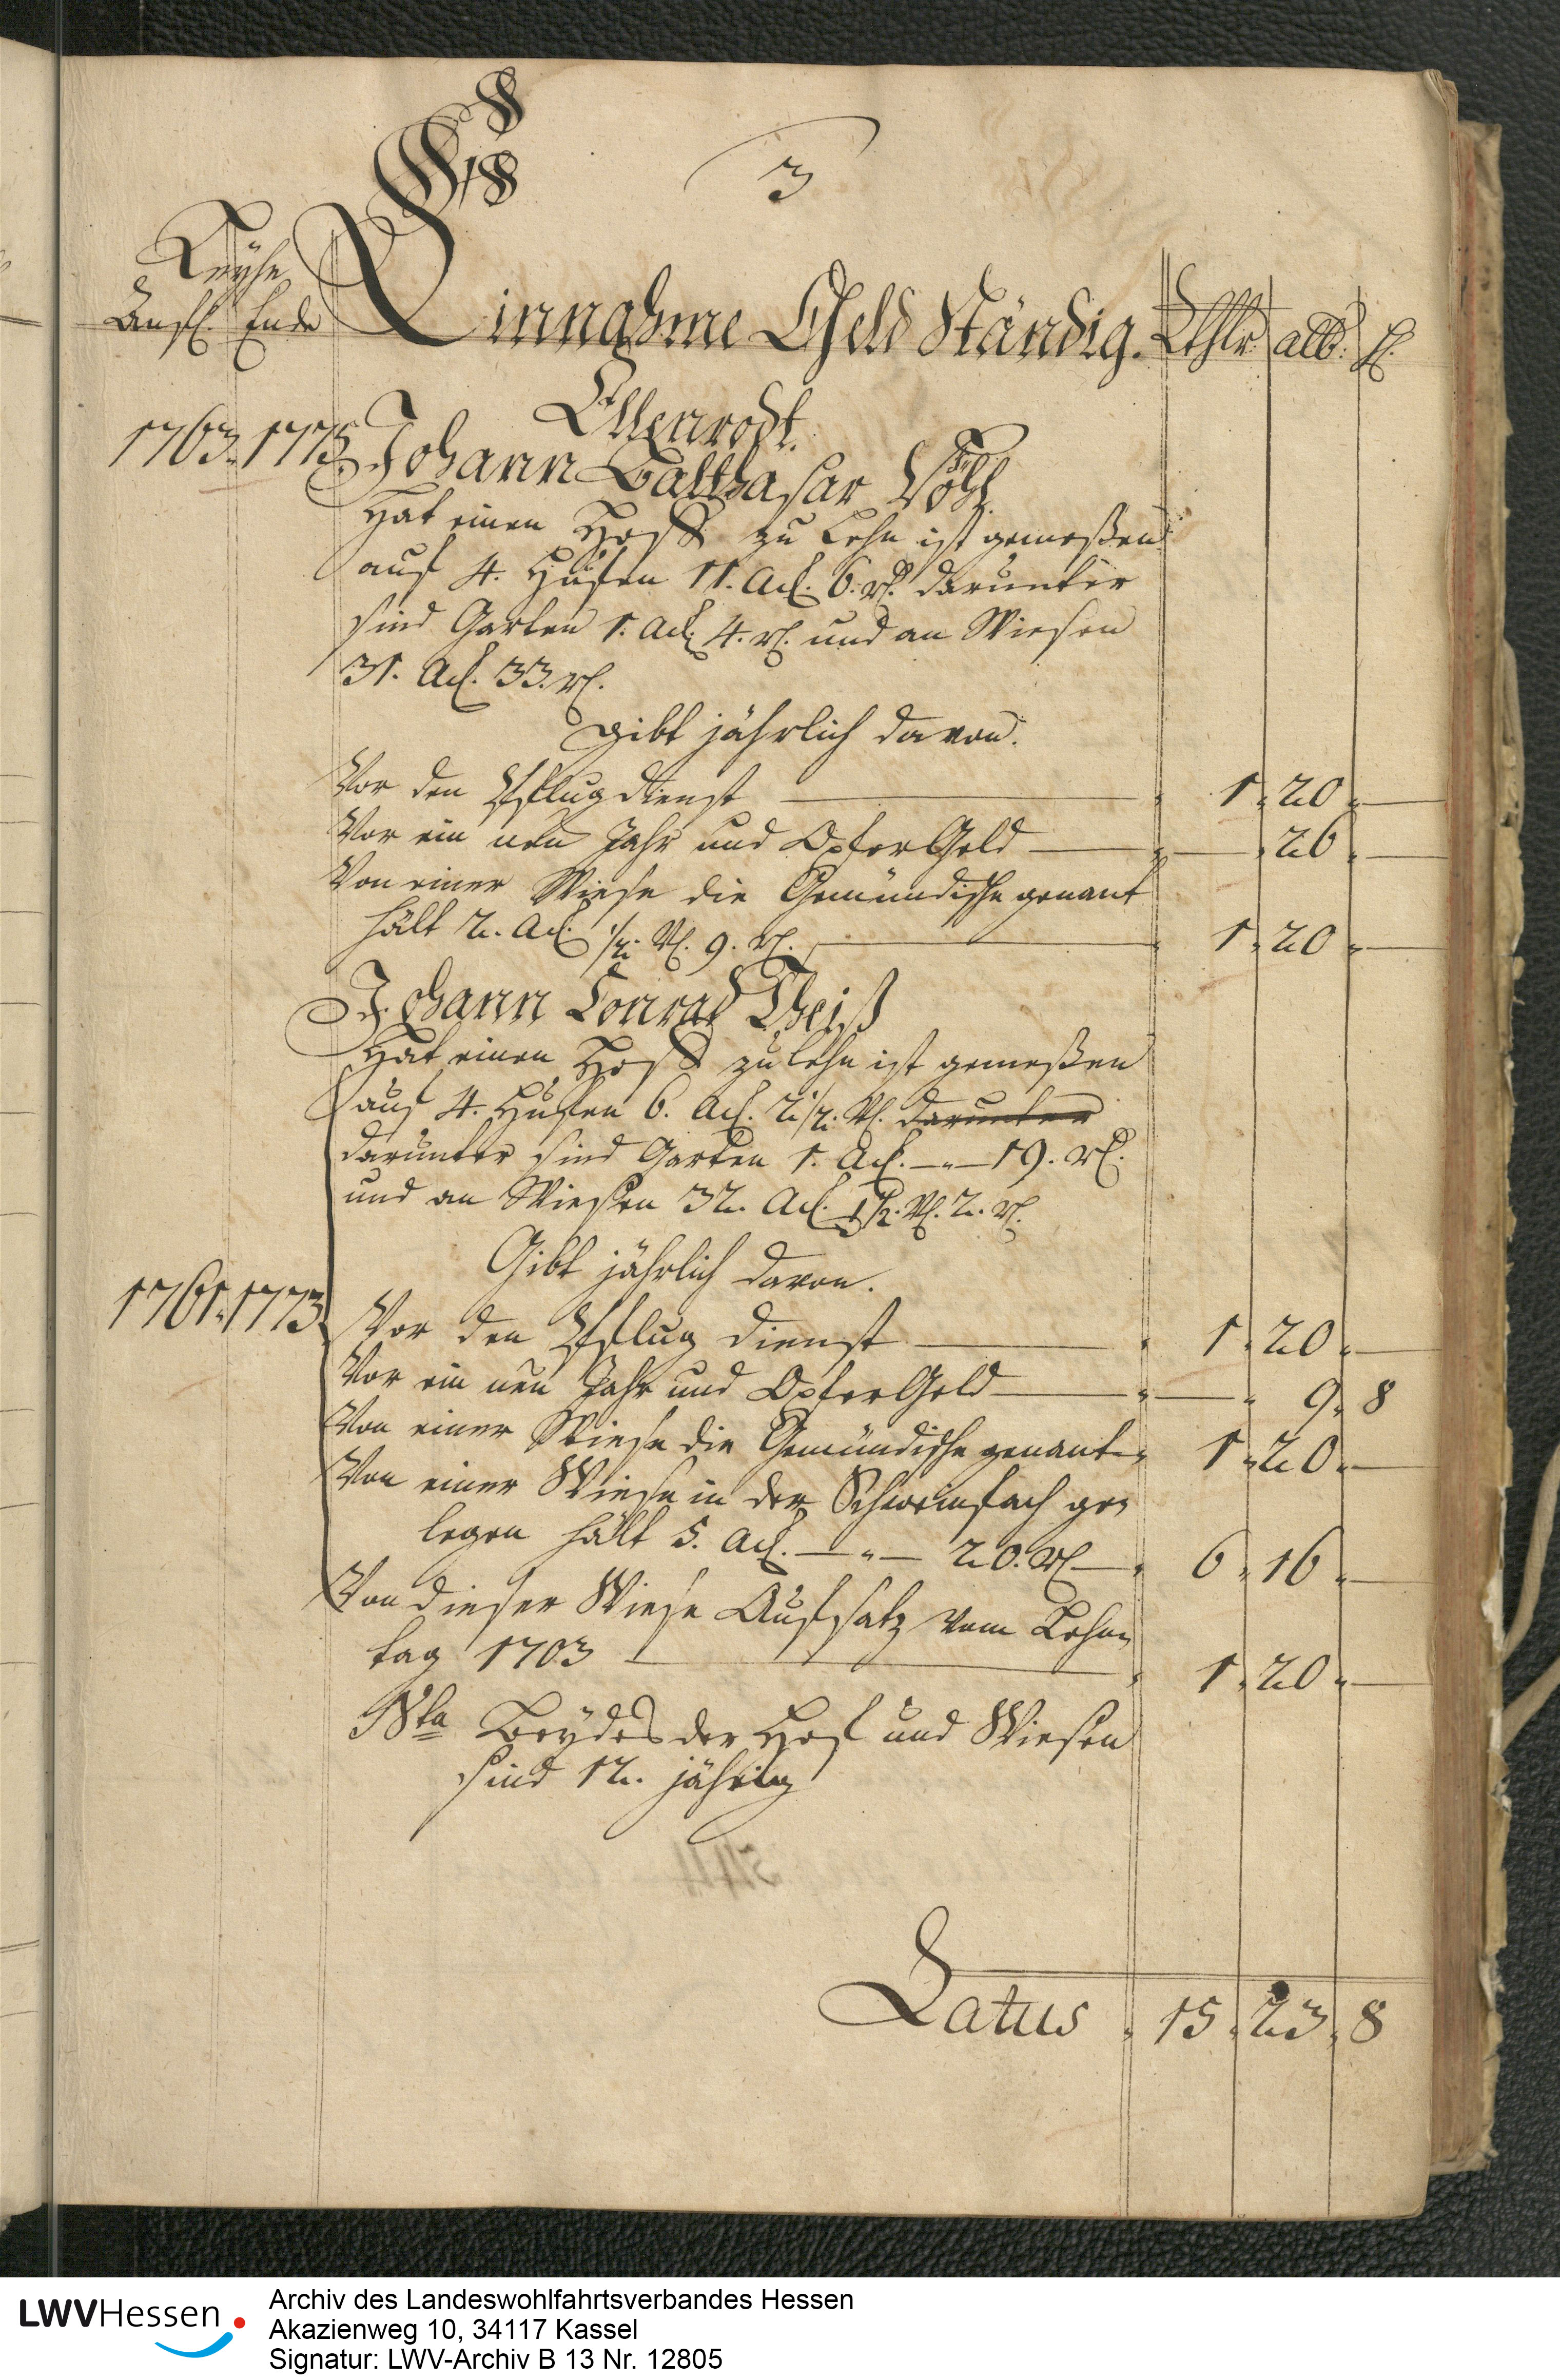 3
Leyhe
Anf. Ende
Einnahme Geld Ständig. Rthlr alb. h.
Ellenrodt.
1763. 1775. Johann Balthasar Völ
Hat einen Hoff zu Lehn ist gemeßen
auf 4. Hufen 11. Ack. 6. rt. darunter
sind Garten 1. Ack. 4. rt. und an Wiesen
31. Ack. 33. rt.
gibt jährlich davon.
Vor den Pflugdienst 1. 20.
Vor ein neu Jahr und OpferGeld 26.
Von einer Wiese die Gemündische genant
hält 2. Ack. 1/2. Vt. 9. rt. 1. 20.
Johann Conrad Theiß
Hat einen Hoff zu Lehn ist gemeßen
auf 4. Hufen 6. Ack. 2 1/2. Vt. darunter
darunter sind Garten 1. Ack. — " — 19. rt.
und an Wiesen 32. Ack. 1/2. Vt. 2. rt.
Gibt jährlich davon.
1761. 1773. Vor den Pflug dienst 1. 20.
Vor ein neu Jahr und OpferGeld 9. 8
Von einer Wiese die Gemündische genant 1. 20.
Von einer Wiese in der Schweinfach ge=
legen hält 5. Ack. — " — 20. rt. 6. 16.
Von dieser Wiese Aufsatz vom Lehn=
tag 1703 1. 20.
Nta Beydes der Hof und Wiesen
sind 12. jährig
Latus 15. 23. 8
LWVHessen
Archiv des Landeswohlfahrtsverbandes Hessen
Akazienweg 10, 34117 Kassel
Signatur: LWV-Archiv B 13 Nr. 12805